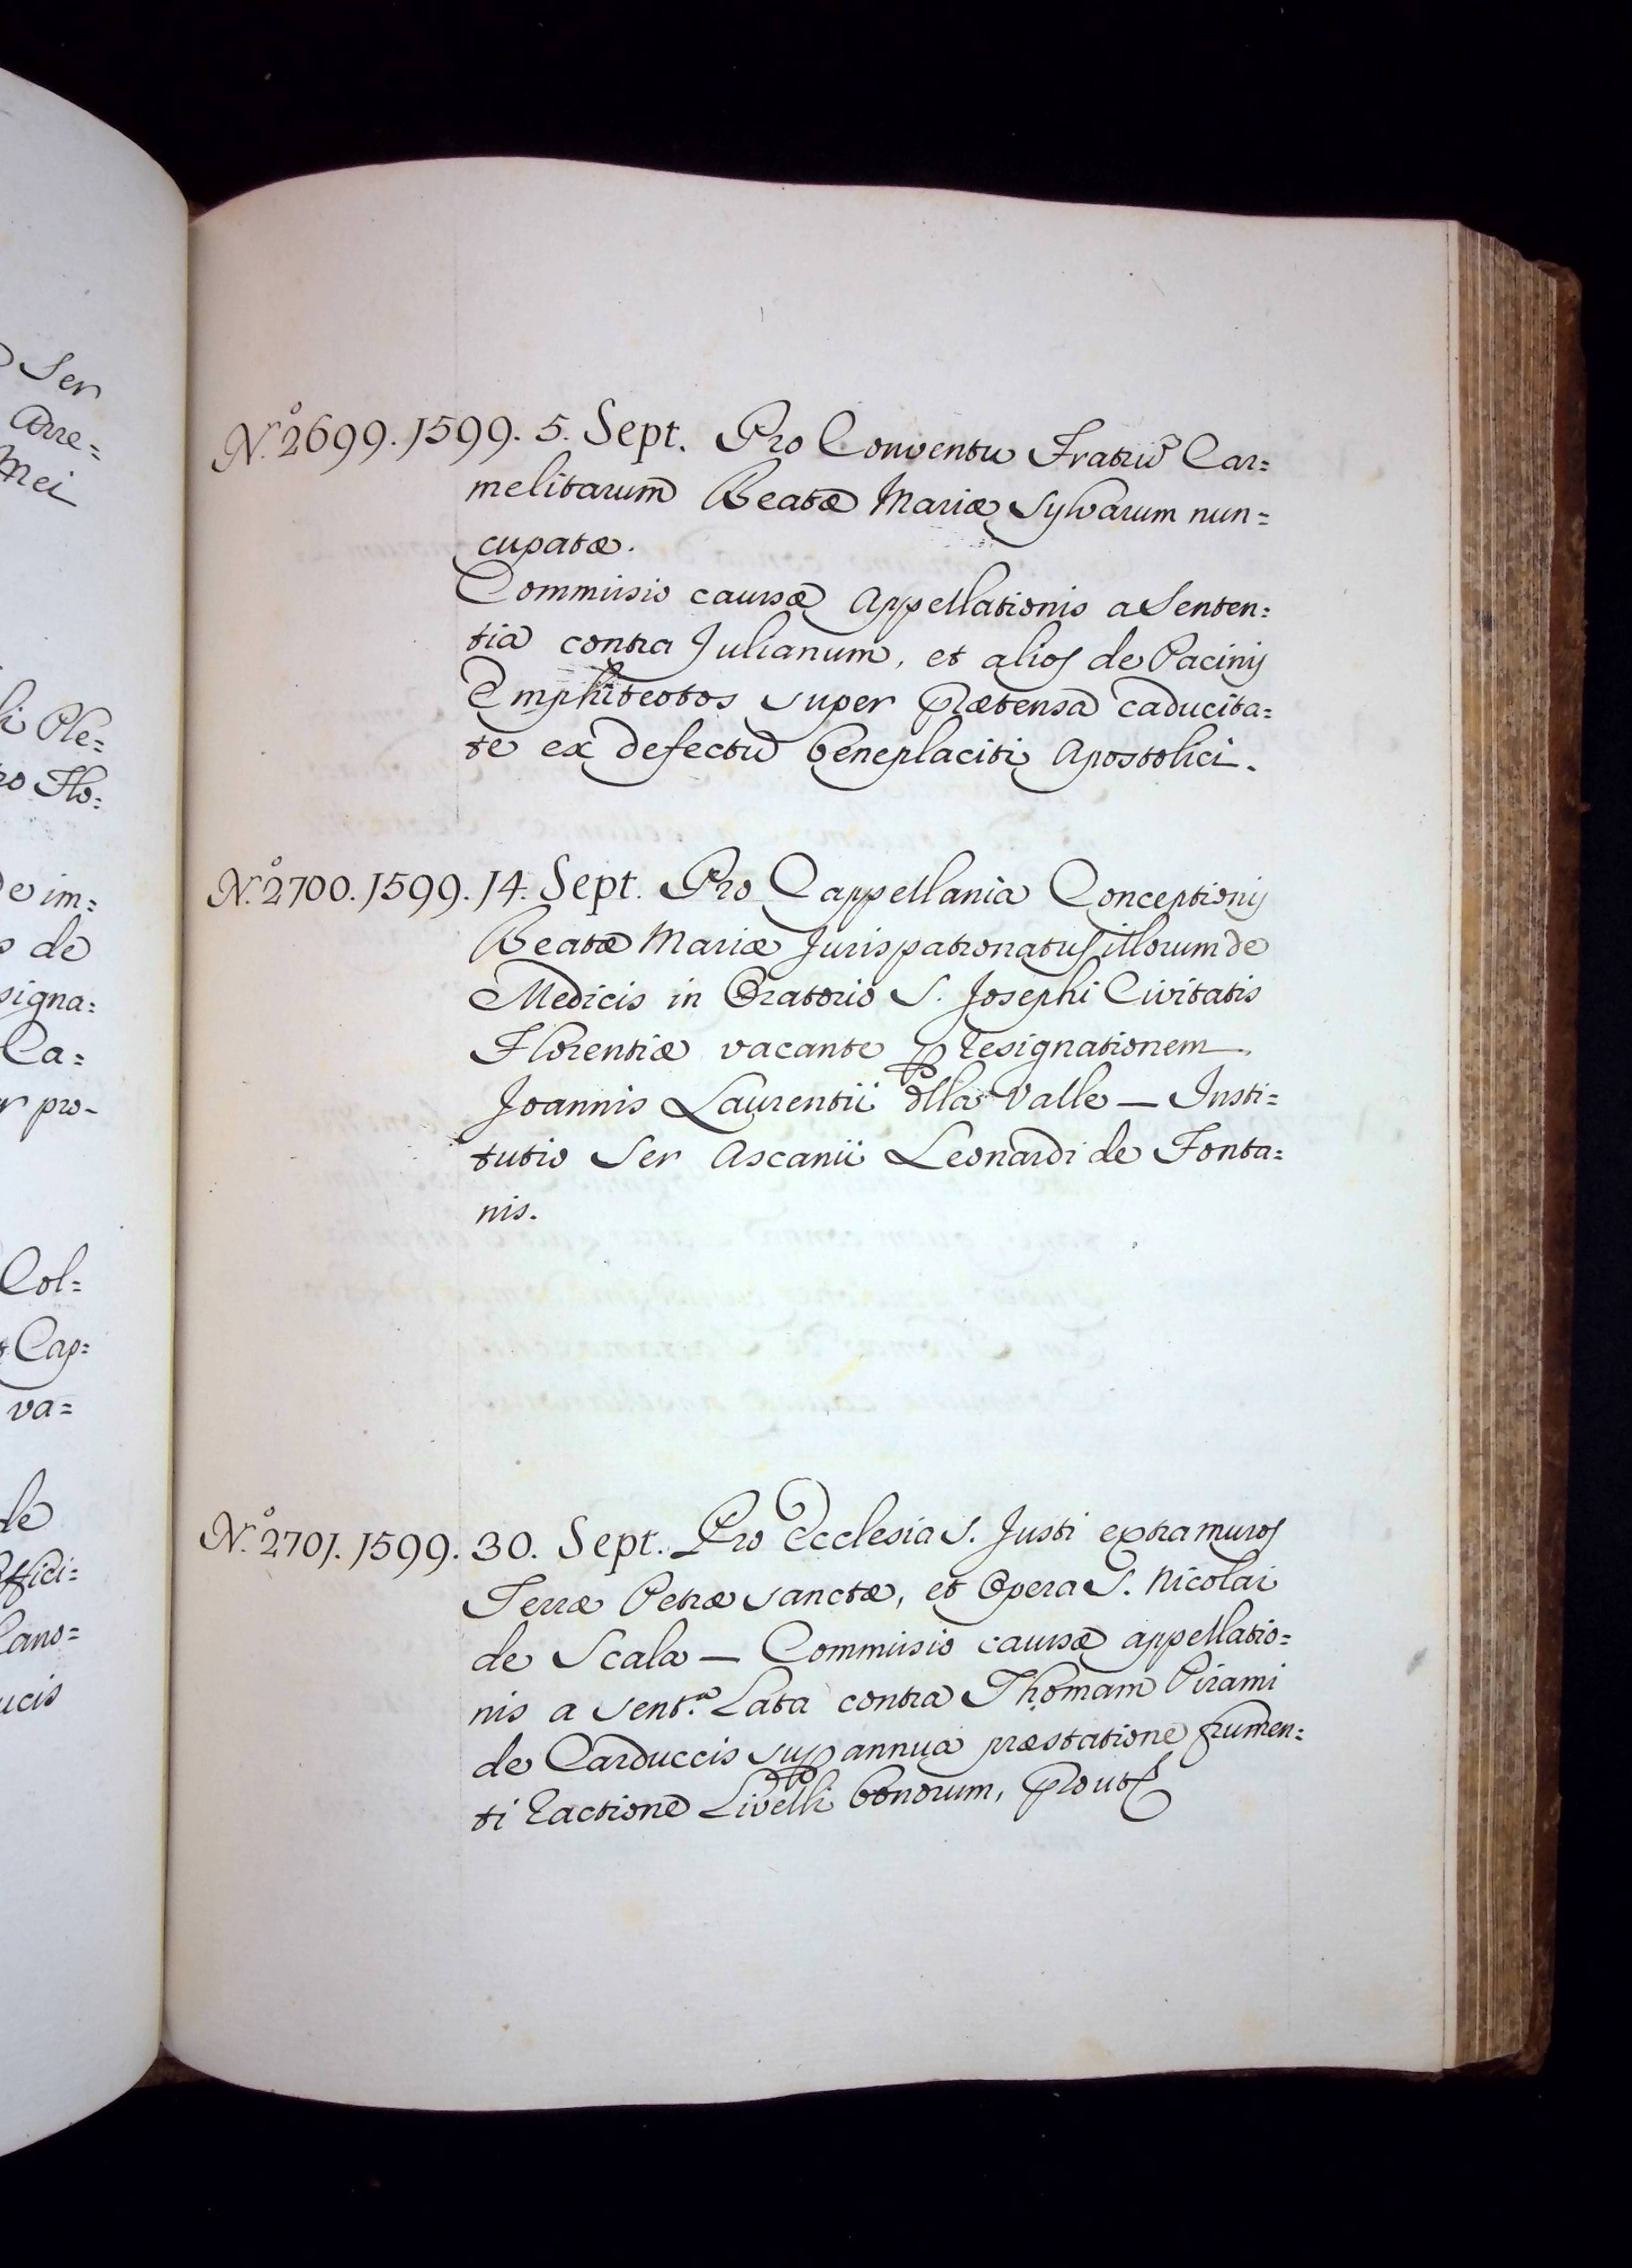 Ser
Arre=
Mei
li Ple=
ro Flo=
de im=
s de
signa=
Ca=
r pro-
Col=
Cap=
va=
le
ffici=
Cano=
ucis
N.º 2699. 1599. 5. Sept. Pro Conventu Fratrũ Car=
melitarum Beatæ Mariæ Sylvarum nun=
cupatæ.
Commissio causæ Appellationis a Senten=
tia contra Julianum, et alios de Pacinis
Emphiteotos super prætensa caducita=
te ex defectu beneplaciti Apostolici.
N.º 2700. 1599. 14. Sept. Pro Cappellania Conceptionis
Beatæ Mariæ Jurispatronatus illorum de
Medicis in Oratorio S. Josephi Civitatis
Florentiæ vacante ꝑ resignationem
Joannis Laurentii dlla Valle — Insti=
tutio Ser Ascanii Leonardi de Fonta=
nis.
N.º 2701. 1599. 30. Sept. Pro Ecclesia S. Justi extra muros
Terræ Petræ Sanctæ, et Opera S. Nicolai
de Scala — Commissio causæ appellatio=
nis a Sent.ª Lata contra Thomam Pirami
de Carduccis suꝑ annua præstatione frumen=
ti ractione Livelli bonorum, prout